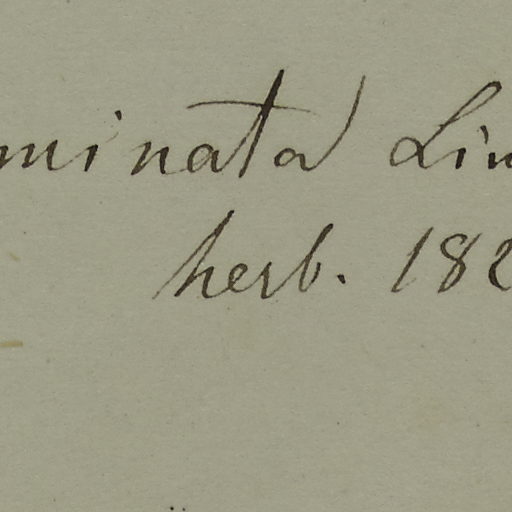 minata Lin
herb. 182